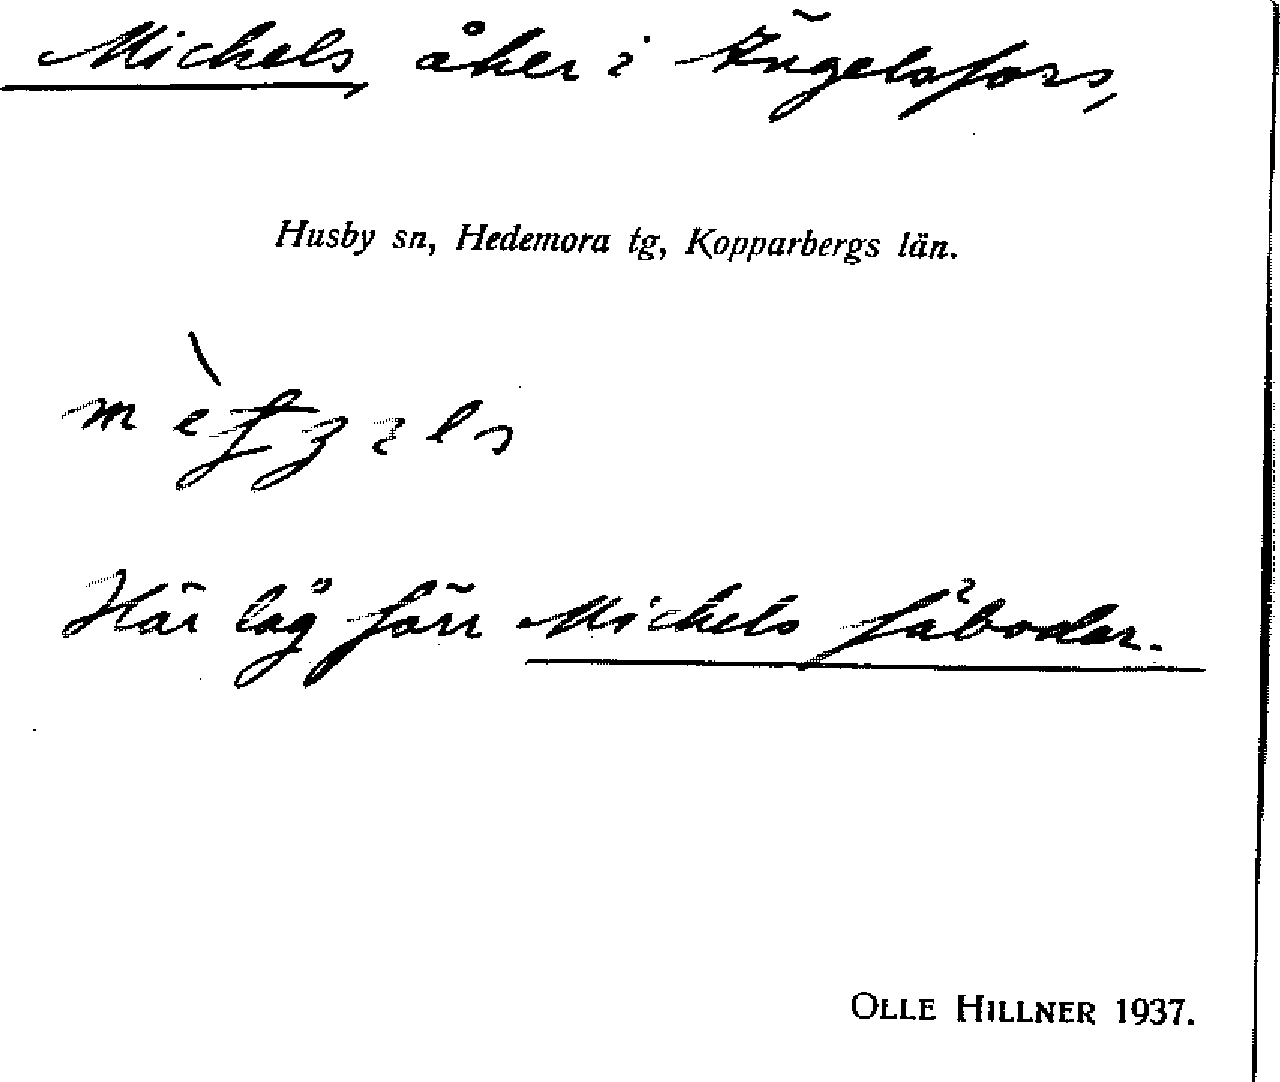 Michels, åker i Ängelsfors,
Husby sn, Hedemora tg, Kopparbergs län.
Här låg förr Michels fäbodar.
OLLE HILLNER 1937.